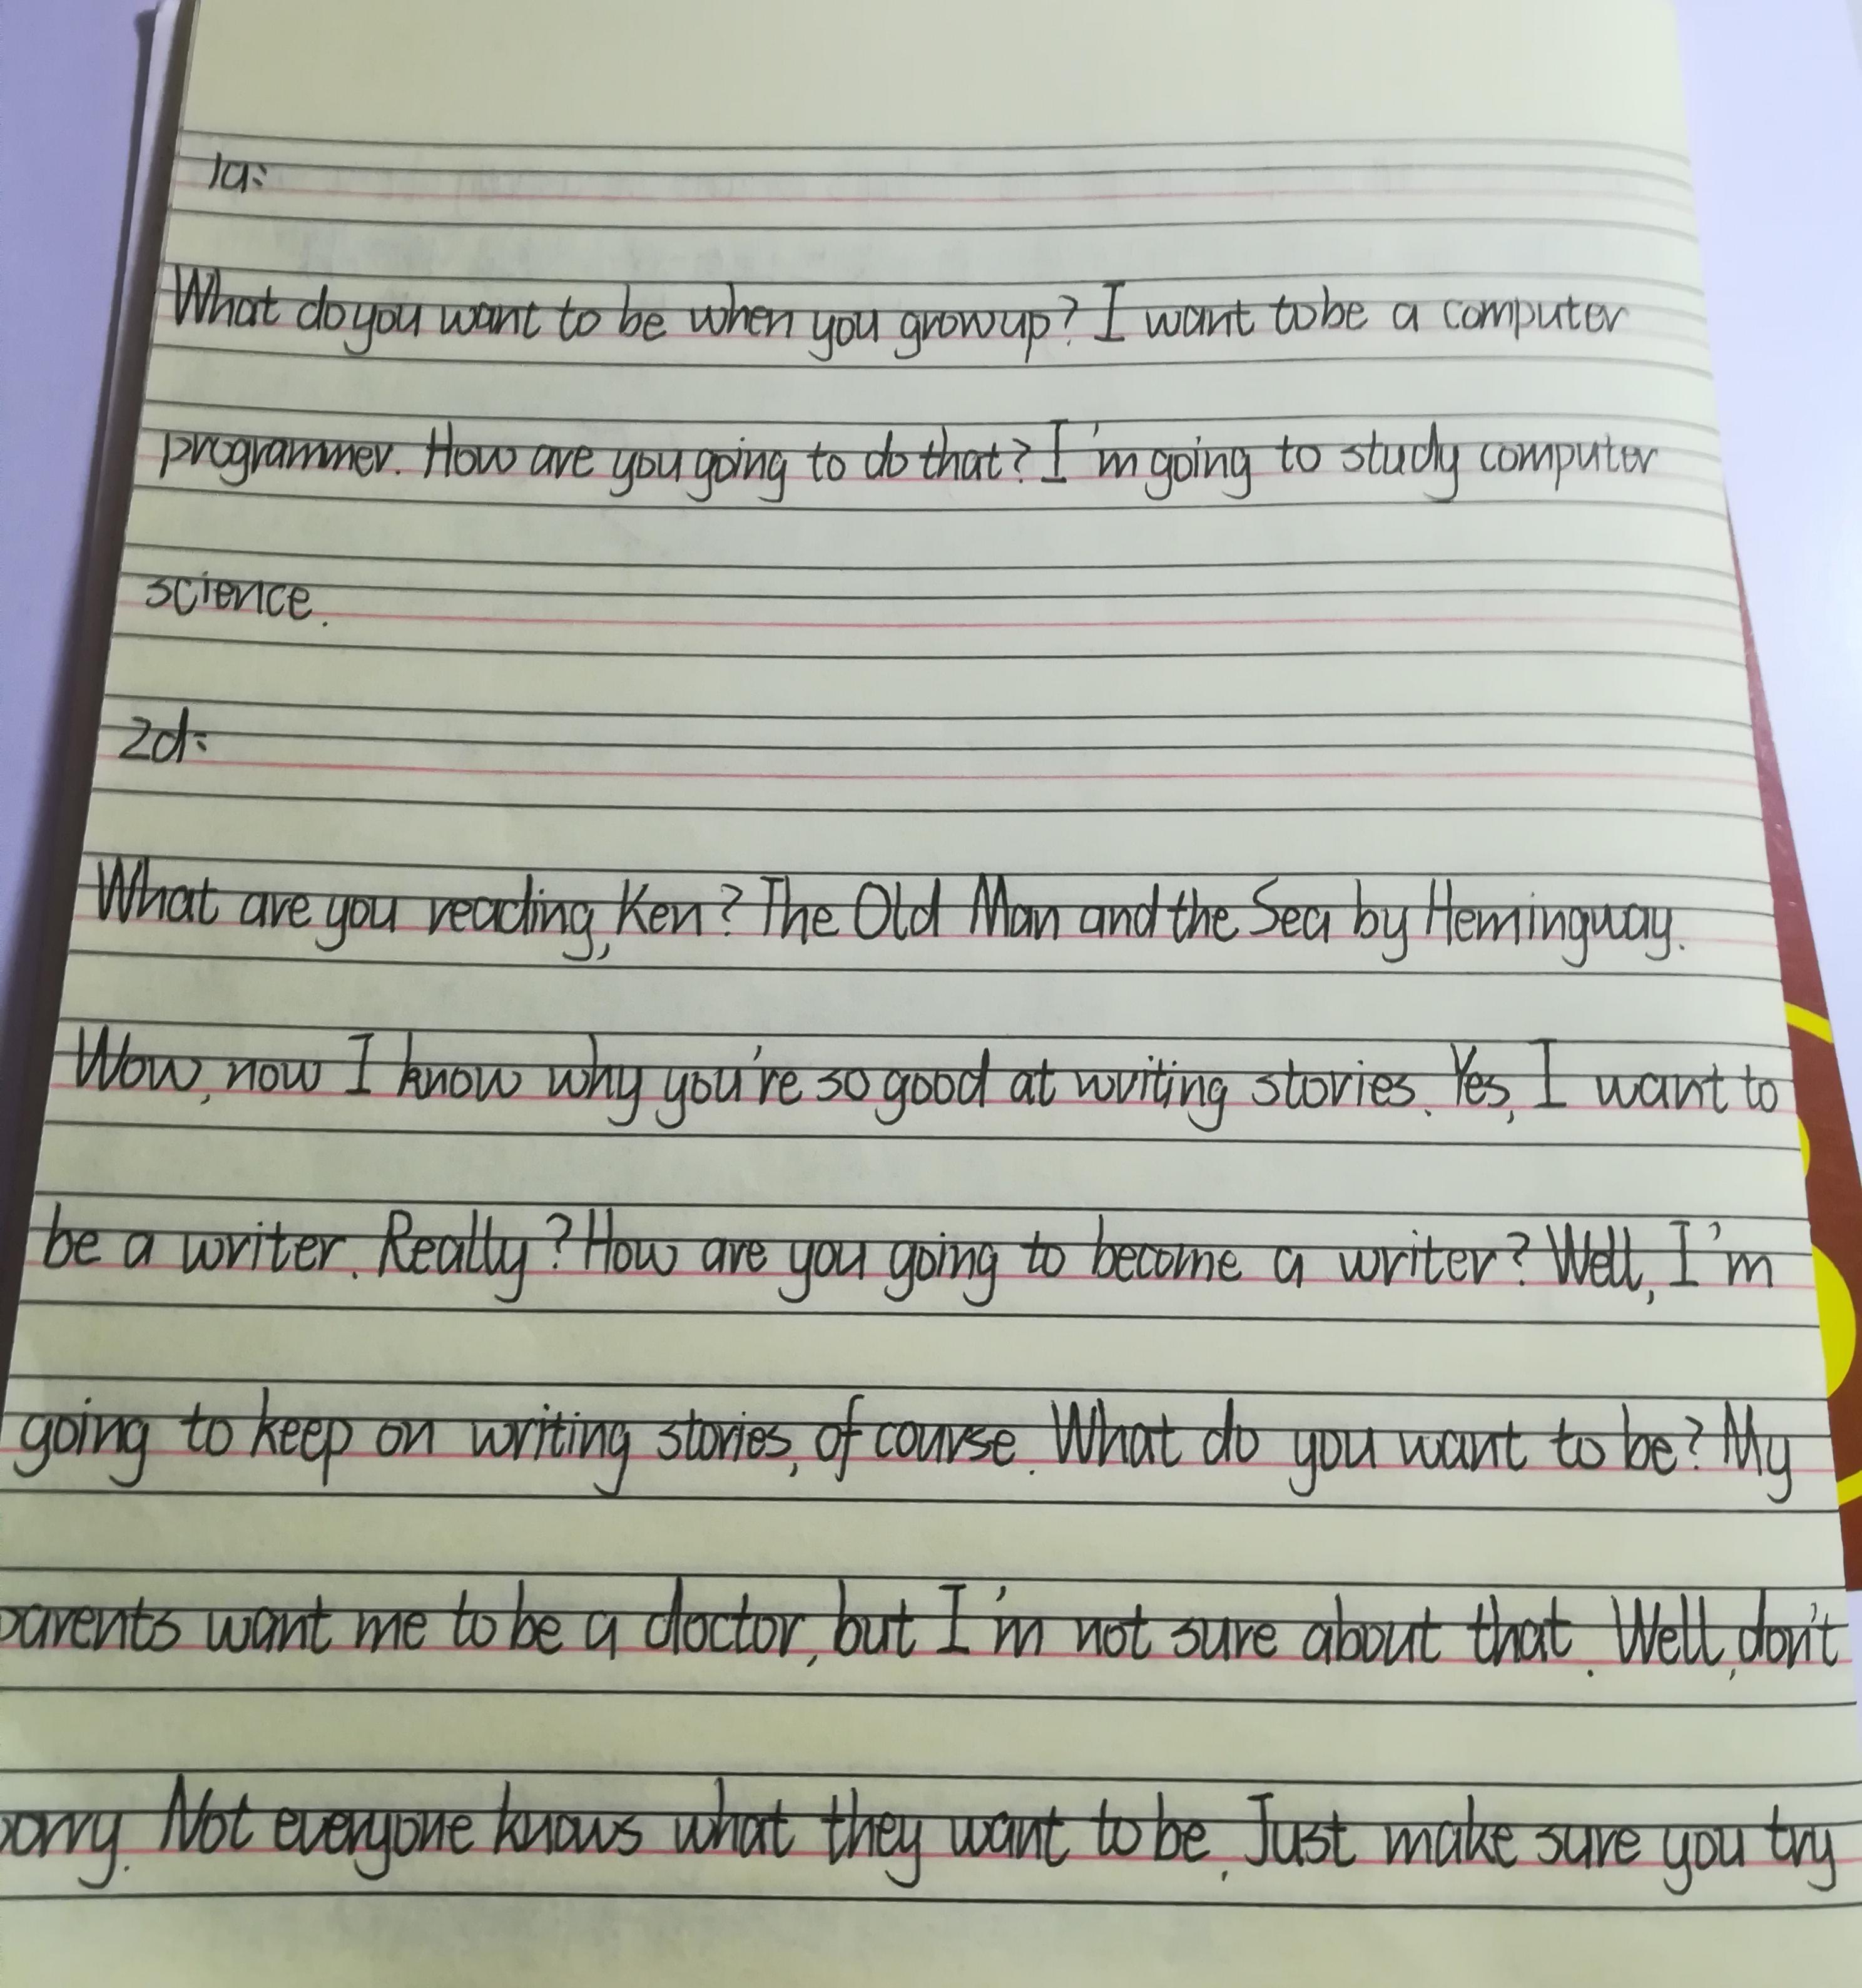 1a:
What do you want to be when you grow up? I want to be a computer
programmer. How are you going to do that? I'm going to study computer
science.
2d:
What are you reading, Ken? The Old Man and the Sea by Hemingway.
Wow, now I know why you're so good at writing stories. Yes, I want to
be a writer. Really? How are you going to become a writer? Well, I'm
going to keep on writing stories, of course. What do you want to be? My
parents want me to be a doctor, but I'm not sure about that. Well, don't
orry. Not everyone knows what they want to be. Just make sure you try